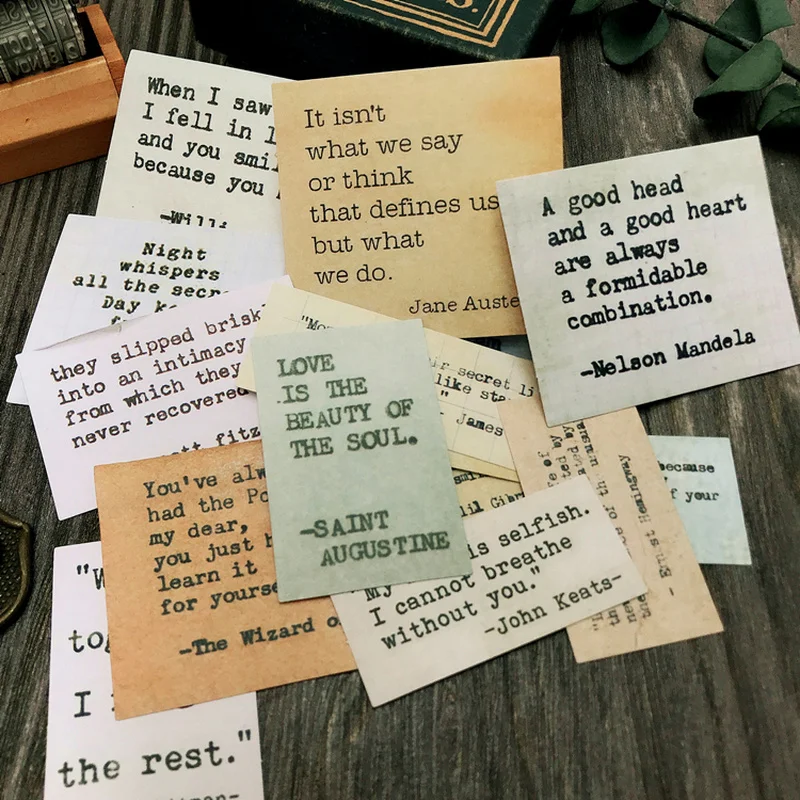 When I saw
I fell in
and you smil
because you
It isn't
what we say
or think
that defines us
but what
we do.
Jane Auste
A good head
and a good heart
are always
a formidable
combination.
-Nelson Mandela
Night
whispers
all the secr
Day
they slipped brisk
into an intimacy
from which they
never recovered
fitz
secret li
like sta
- James
LOVE
IS THE
BEAUTY OF
THE SOUL.
-SAINT
AUGUSTINE
You've alw
had the Po
my dear,
you just h
learn it
for yourse
-The Wizard o
is selfish.
I cannot breathe
without you."
-John Keats-
- Ernest Hemingway
because
f your
I
the rest."